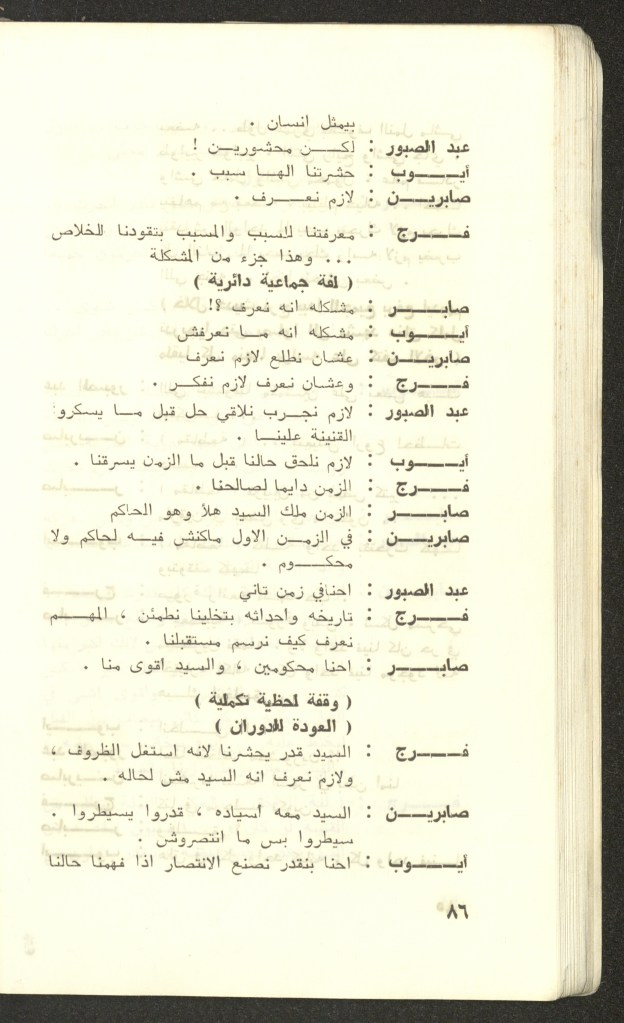 بيمثل انسان .
عبد الصبور : لكن محشورين !
أيوب : حشرتنا الها سبب .
صابرين : لازم نعرف .
فرج : معرفتنا للسبب والمسبب بتقودنا للخلاص
... وهذا جزء من المشكلة
( لفة جماعية دائرية )
صابر : مشكله انه نعرف ؟!
أيوب : مشكله انه ما نعرفش
صابرين : عشان نطلع لازم نعرف
فرج : وعشان نعرف لازم نفكر .
عبد الصبور : لازم نجرب نلاقي حل قبل ما يسكروا
القنينة علينا .
أيوب : لازم نلحق حالنا قبل ما الزمن يسرقنا .
فرج : الزمن دايما لصالحنا .
صابر : الزمن ملك السيد هلأ وهو الحاكم
صابرين : في الزمن الاول ماكنش فيه لحاكم ولا
محكوم .
عبد الصبور : احنافي زمن تاني
فرج : تاريخه واحداثه بتخلينا نطمئن ، المهم
نعرف كيف نرسم مستقبلنا .
صابر : احنا محكومين ، والسيد اقوى منا .
( وقفة لحظية تكملية )
( العودة للدوران )
فرج : السيد قدر يحشرنا لانه استغل الظروف ،
ولازم نعرف انه السيد مش لحاله .
صابرين : السيد معه أسياده ، قدروا يسيطروا .
سيطروا بس ما انتصروش .
أيوب : احنا بنقدر نصنع الانتصار اذا فهمنا حالنا
٨٦